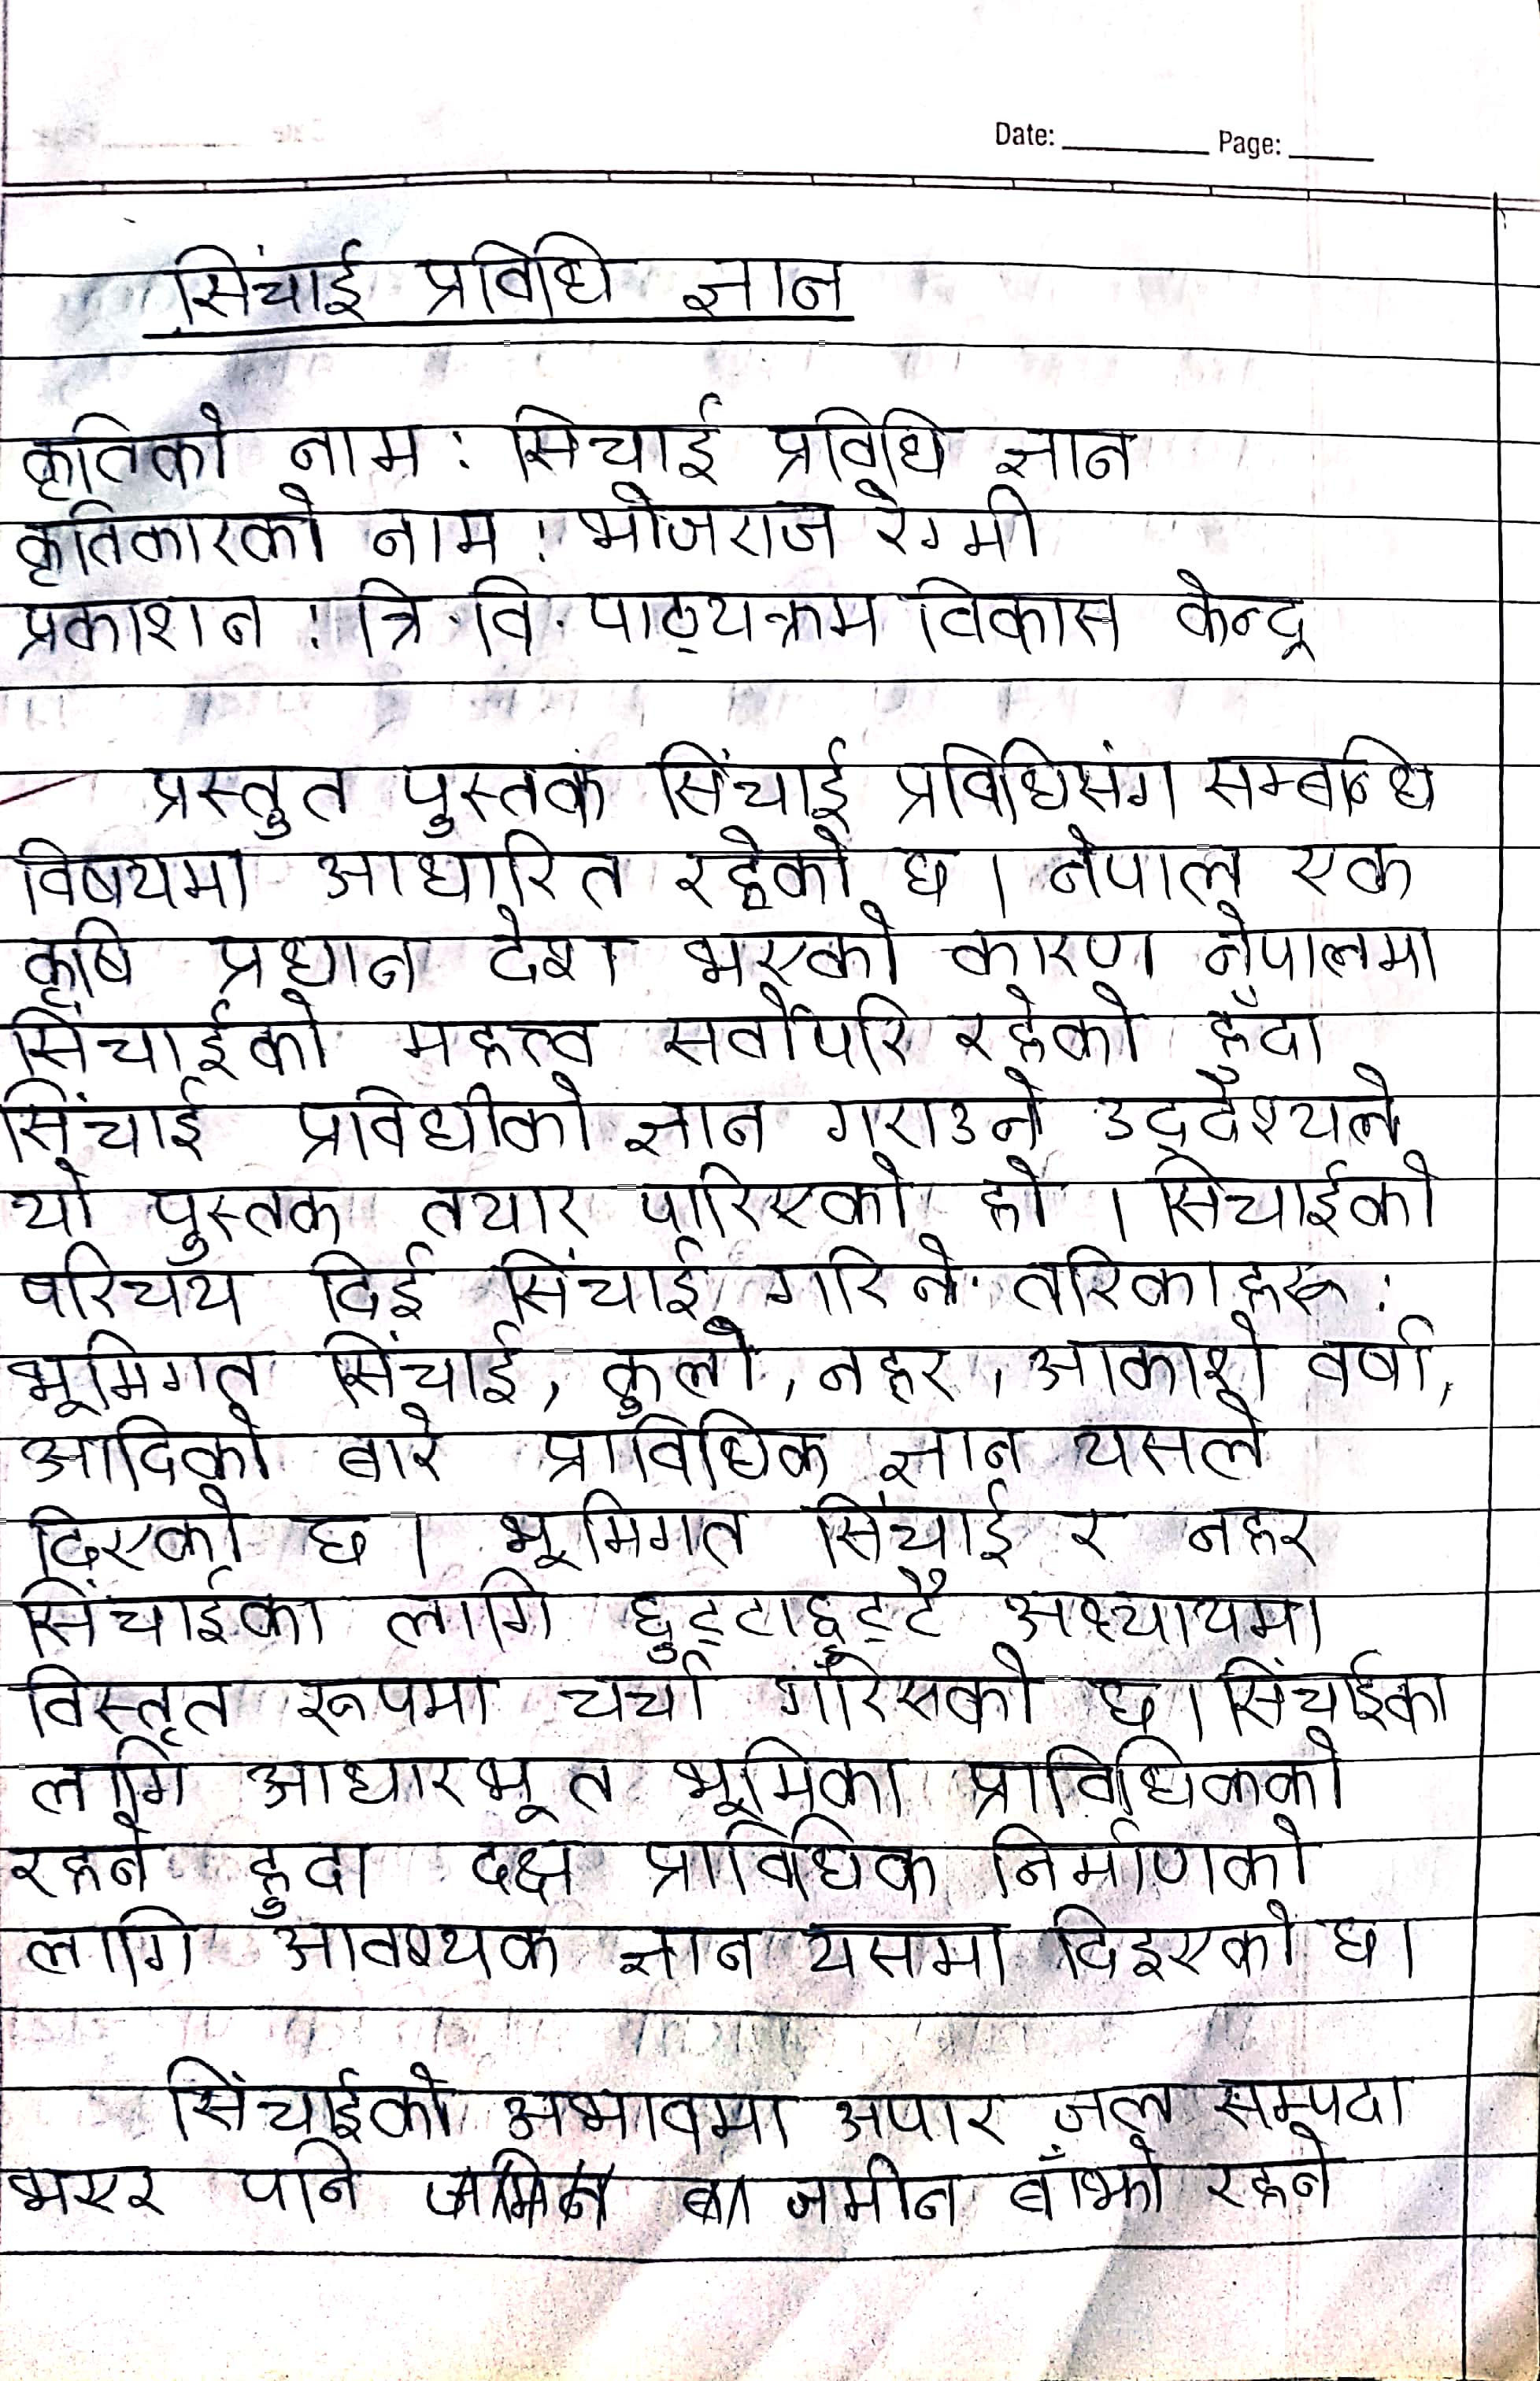 Date: ________ Page: ____
सिंचाई प्रविधि ज्ञान
कृतिको नाम : सिचाई प्रविधि ज्ञान
कृतिकारको नाम : भोजराज रेग्मी
प्रकाशन : त्रि.वि. पाठ्यक्रम विकास केन्द्र
प्रस्तुत पुस्तक सिंचाई प्रविधिसंग सम्बन्धि
विषयमा आधारित रहेको छ । नेपाल एक
कृषि प्रधान देश भएको कारण नेपालमा
सिंचाईको महत्त्व सर्वोपरि रहेको हुँदा
सिंचाई प्रविधीको ज्ञान गराउने उद्देश्यले
यो पुस्तक तयार पारिएको हो । सिचाईको
परिचय दिई सिंचाई गरिने तरिकाहरू :
भूमिगत सिंचाई, कुलो, नहर, आकाशे वर्षा,
आदिको बारे प्राविधिक ज्ञान यसले
दिएको छ । भूमिगत सिंचाई र नहर
सिंचाईका लागि छुट्टाछुट्टै अध्यायमा
विस्तृत रूपमा चर्चा गरिएको छ । सिंचाईका
लागि आधारभूत भूमिका प्राविधिकको
रहने हुँदा दक्ष प्राविधिक निर्माणको
लागि आवश्यक ज्ञान यसमा दिइएको छ ।
सिंचाईको अभावमा अपार जल सम्पदा
भएर पनि जमीन बाँझो रहने